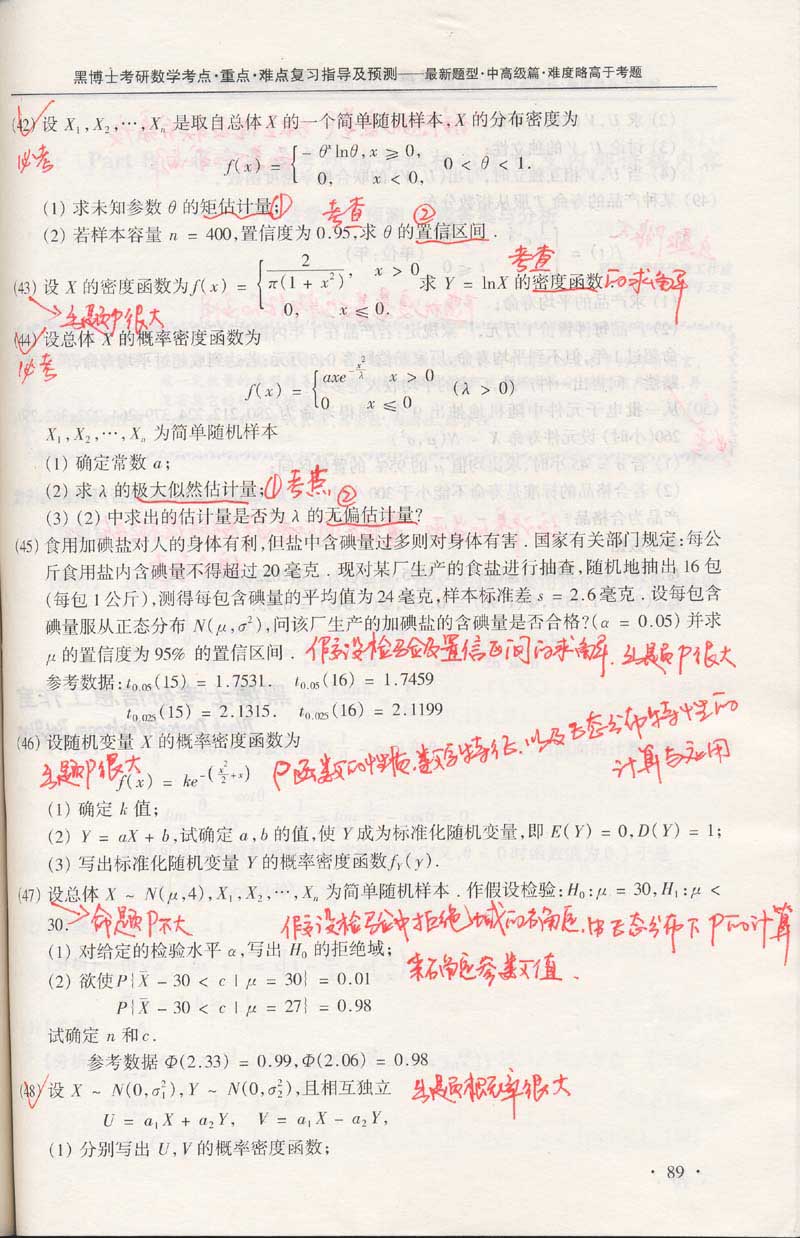 黑博士考研数学考点·重点·难点复习指导及预测——最新题型·中高级篇·难度略高于考题
(42) 设 X₁,X₂,…,Xₙ 是取自总体 X 的一个简单随机样本,X 的分布密度为
必考
f(x) = { -θˣlnθ, x ≥ 0, 0, x < 0, 0 < θ < 1.
(1) 求未知参数 θ 的矩估计量; ① 考查 ②
(2) 若样本容量 n = 400,置信度为 0.95,求 θ 的置信区间.
考查
(43) 设 X 的密度函数为 f(x) = { 2/(π(1 + x²)), x > 0 0, x ≤ 0. 求 Y = lnX 的密度函数 的求解
命题P很大
(44) 设总体 X 的概率密度函数为
必考
f(x) = { axe^(-x²/λ) x > 0 0 x ≤ 0 (λ > 0)
X₁,X₂,…,Xₙ 为简单随机样本
(1) 确定常数 a;
(2) 求 λ 的极大似然估计量; ①考点 ②
(3) (2) 中求出的估计量是否为 λ 的无偏估计量?
(45) 食用加碘盐对人的身体有利,但盐中含碘量过多则对身体有害.国家有关部门规定:每公
斤食用盐内含碘量不得超过 20 毫克.现对某厂生产的食盐进行抽查,随机地抽出 16 包
(每包 1 公斤),测得每包含碘量的平均值为 24 毫克,样本标准差 s = 2.6 毫克.设每包含
碘量服从正态分布 N(μ,σ²),问该厂生产的加碘盐的含碘量是否合格?(α = 0.05) 并求
μ 的置信度为 95% 的置信区间. 假设检验及置信区间的求解.命题P很大
参考数据:t₀.₀₅(15) = 1.7531. t₀.₀₅(16) = 1.7459
t₀.₀₂₅(15) = 2.1315. t₀.₀₂₅(16) = 2.1199
(46) 设随机变量 X 的概率密度函数为
命题P很大 P函数的性质.数字特征.以及正态分布特性的
f(x) = ke^(-(x²/2+x)) 计算与应用
(1) 确定 k 值;
(2) Y = aX + b,试确定 a,b 的值,使 Y 成为标准化随机变量,即 E(Y) = 0,D(Y) = 1;
(3) 写出标准化随机变量 Y 的概率密度函数 f_Y(y).
(47) 设总体 X ~ N(μ,4),X₁,X₂,…,Xₙ 为简单随机样本.作假设检验:H₀:μ = 30,H₁:μ <
30. 命题P不大 假设检验中拒绝域的确定.由正态分布下P的计算
(1) 对给定的检验水平 α,写出 H₀ 的拒绝域; 来确定参数值.
(2) 欲使 P{X̄ - 30 < c | μ = 30} = 0.01
P{X̄ - 30 < c | μ = 27} = 0.98
试确定 n 和 c.
参考数据 Φ(2.33) = 0.99,Φ(2.06) = 0.98
(48) 设 X ~ N(0,σ₁²),Y ~ N(0,σ₂²),且相互独立 命题概率很大
U = a₁X + a₂Y, V = a₁X - a₂Y,
(1) 分别写出 U,V 的概率密度函数;
· 89 ·